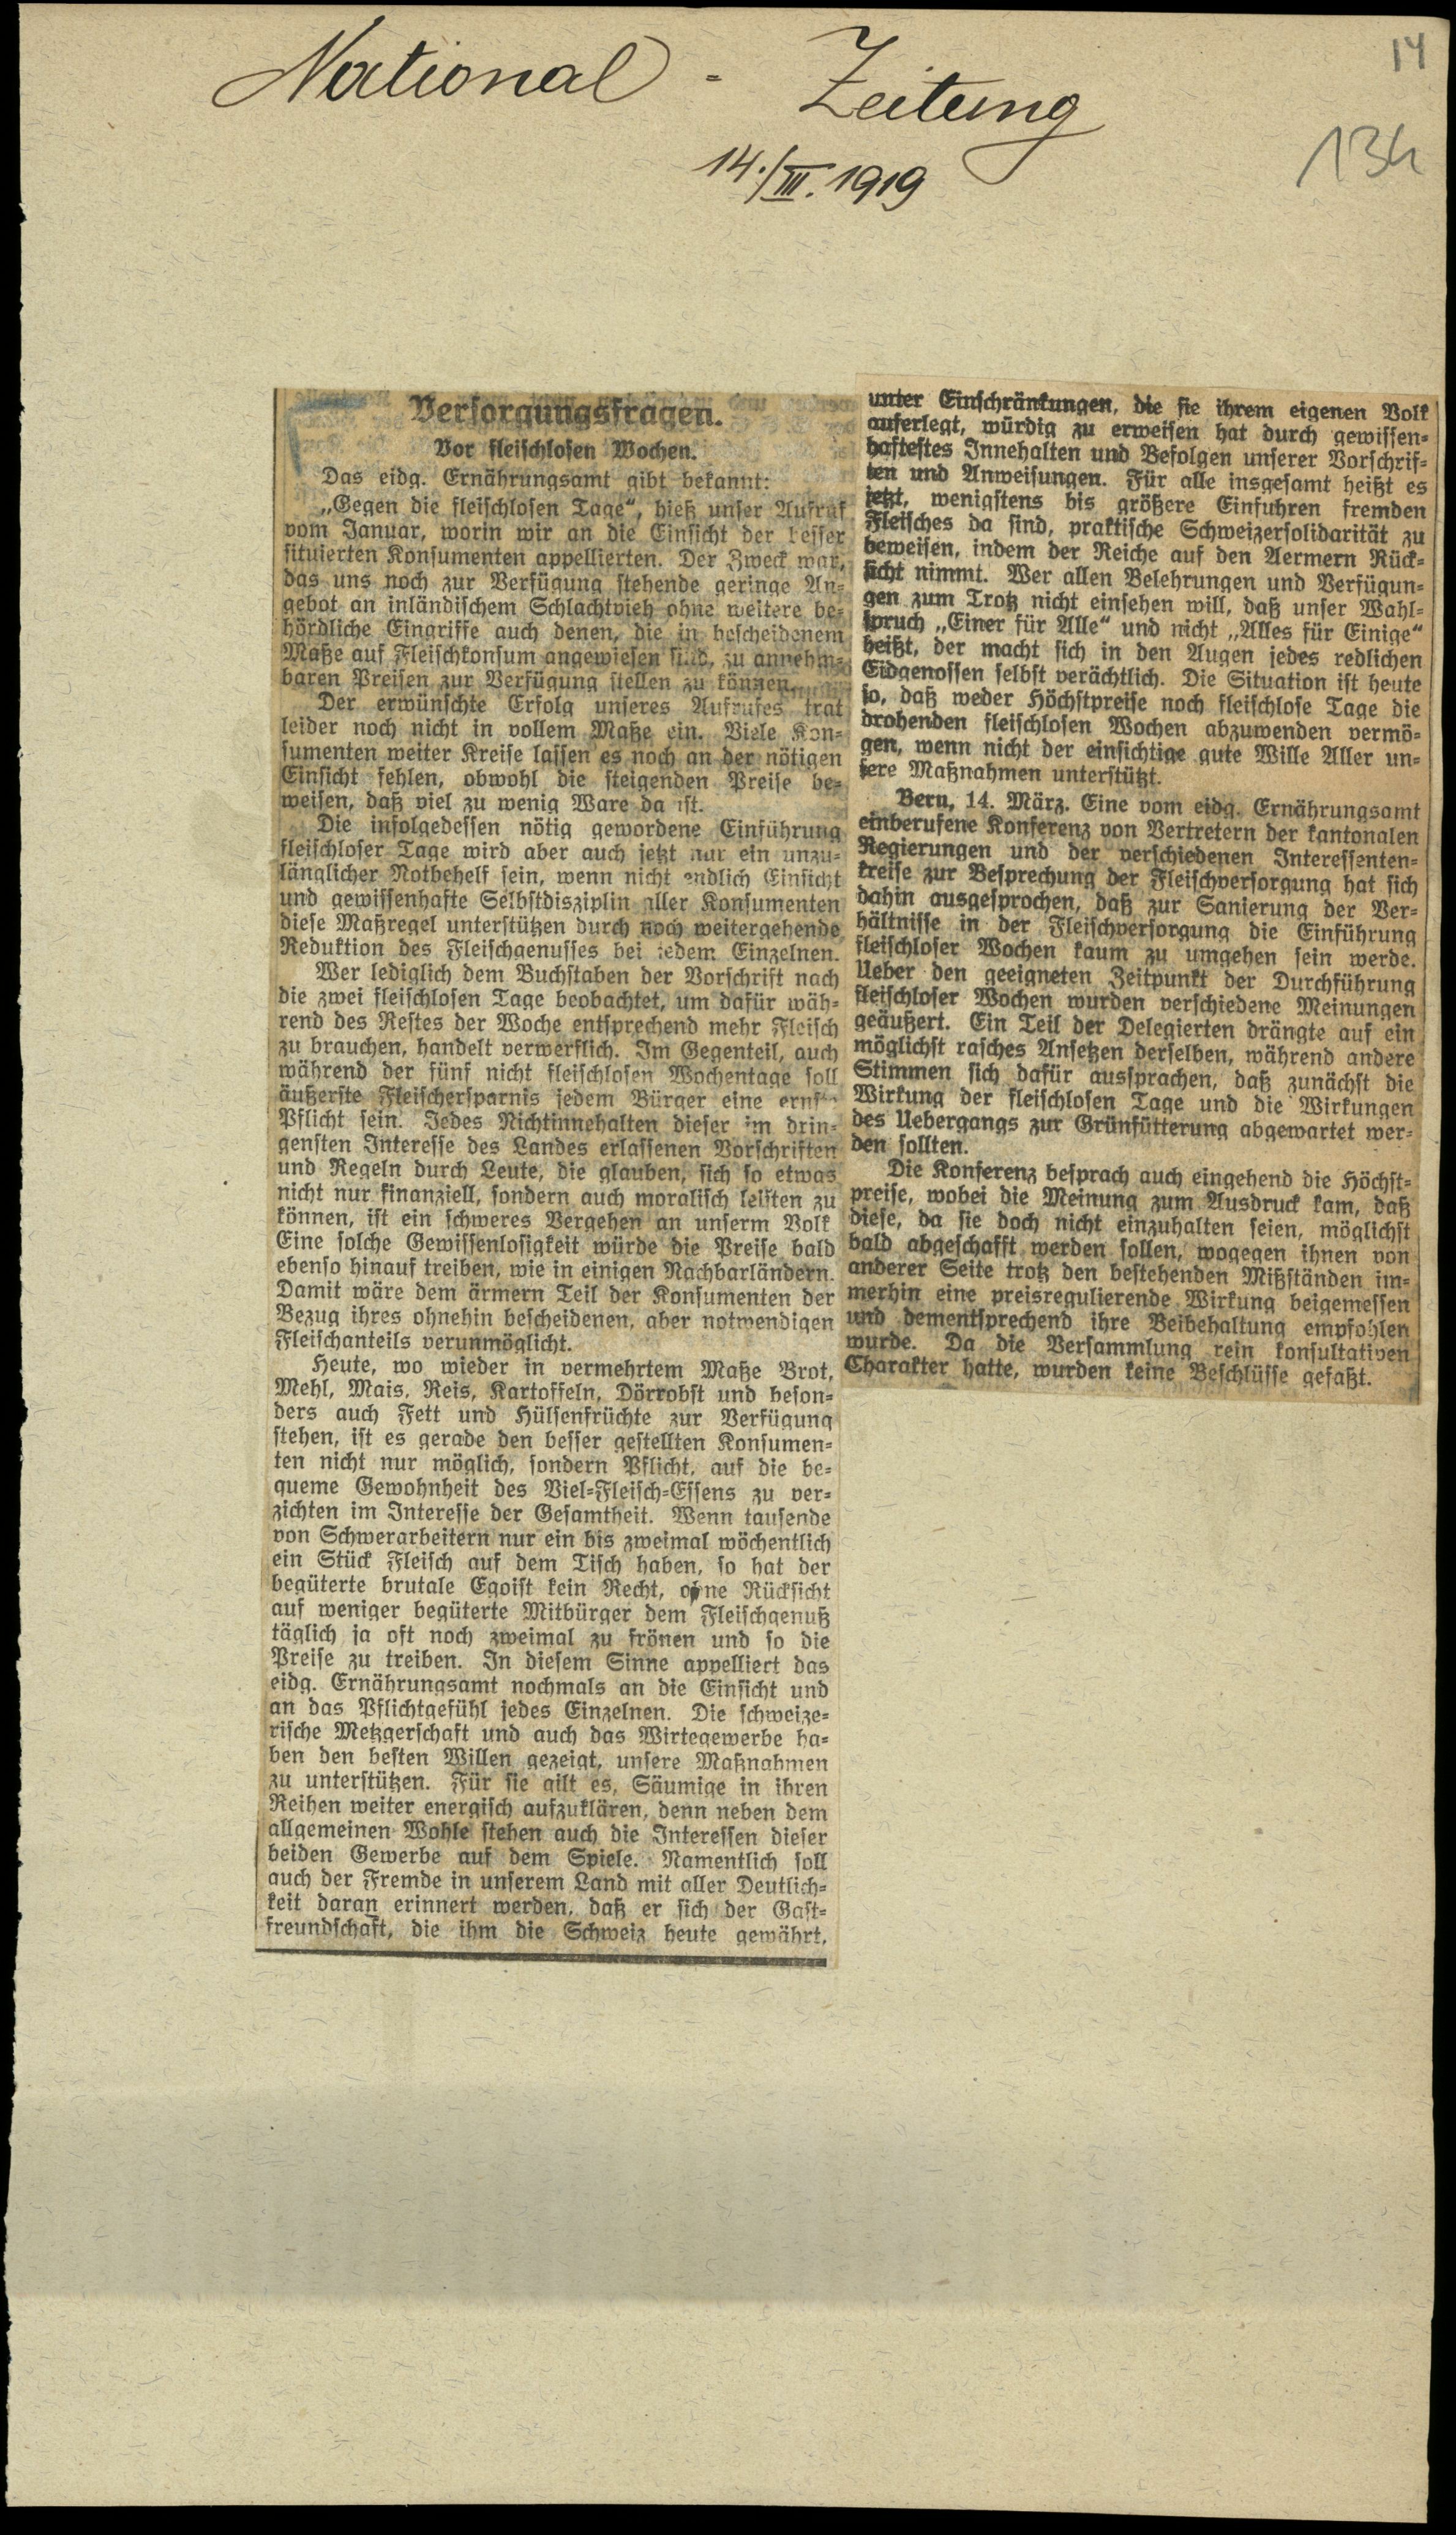 14
National-Zeitung
134
14./III. 1919
Versorgungsfragen.
Vor fleischlosen Wochen.
Das eidg. Ernährungsamt gibt bekannt:
„Gegen die fleischlosen Tage“, hieß unser Aufruf
vom Januar, worin wir an die Einsicht der besser
situierten Konsumenten appellierten. Der Zweck war,
das uns noch zur Verfügung stehende geringe An-
gebot an inländischem Schlachtvieh ohne weitere be-
hördliche Eingriffe auch denen, die in bescheidenem
Maße auf Fleischkonsum angewiesen sind, zu annehm-
baren Preisen zur Verfügung stellen zu können.
Der erwünschte Erfolg unseres Aufrufes trat
leider noch nicht in vollem Maße ein. Viele Kon-
sumenten weiter Kreise lassen es noch an der nötigen
Einsicht fehlen, obwohl die steigenden Preise be-
weisen, daß viel zu wenig Ware da ist.
Die infolgedessen nötig gewordene Einführung
fleischloser Tage wird aber auch jetzt nur ein unzu-
länglicher Notbehelf sein, wenn nicht endlich Einsicht
und gewissenhafte Selbstdisziplin aller Konsumenten
diese Maßregel unterstützen durch noch weitergehende
Reduktion des Fleischgenusses bei jedem Einzelnen.
Wer lediglich dem Buchstaben der Vorschrift nach
die zwei fleischlosen Tage beobachtet, um dafür wäh-
rend des Restes der Woche entsprechend mehr Fleisch
zu brauchen, handelt verwerflich. Im Gegenteil, auch
während der fünf nicht fleischlosen Wochentage soll
äußerste Fleischersparnis jedem Bürger eine ernste
Pflicht sein. Jedes Nichtinnehalten dieser im drin-
gensten Interesse des Landes erlassenen Vorschriften
und Regeln durch Leute, die glauben, sich so etwas
nicht nur finanziell, sondern auch moralisch leisten zu
können, ist ein schweres Vergehen an unserm Volk
Eine solche Gewissenlosigkeit würde die Preise bald
ebenso hinauf treiben, wie in einigen Nachbarländern.
Damit wäre dem ärmern Teil der Konsumenten der
Bezug ihres ohnehin bescheidenen, aber notwendigen
Fleischanteils verunmöglicht.
Heute, wo wieder in vermehrtem Maße Brot,
Mehl, Mais, Reis, Kartoffeln, Dörrobst und beson-
ders auch Fett und Hülsenfrüchte zur Verfügung
stehen, ist es gerade den besser gestellten Konsumen-
ten nicht nur möglich, sondern Pflicht, auf die be-
queme Gewohnheit des Viel-Fleisch-Essens zu ver-
zichten im Interesse der Gesamtheit. Wenn tausende
von Schwerarbeitern nur ein bis zweimal wöchentlich
ein Stück Fleisch auf dem Tisch haben, so hat der
begüterte brutale Egoist kein Recht, ohne Rücksicht
auf weniger begüterte Mitbürger dem Fleischgenuß
täglich ja oft noch zweimal zu frönen und so die
Preise zu treiben. In diesem Sinne appelliert das
eidg. Ernährungsamt nochmals an die Einsicht und
an das Pflichtgefühl jedes Einzelnen. Die schweize-
rische Metzgerschaft und auch das Wirtegewerbe ha-
ben den besten Willen gezeigt, unsere Maßnahmen
zu unterstützen. Für sie gilt es, Säumige in ihren
Reihen weiter energisch aufzuklären, denn neben dem
allgemeinen Wohle stehen auch die Interessen dieser
beiden Gewerbe auf dem Spiele. Namentlich soll
auch der Fremde in unserem Land mit aller Deutlich-
keit daran erinnert werden, daß er sich der Gast-
freundschaft, die ihm die Schweiz heute gewährt,
unter Einschränkungen, die sie ihrem eigenen Volk
auferlegt, würdig zu erweisen hat durch gewissen-
haftestes Innehalten und Befolgen unserer Vorschrif-
ten und Anweisungen. Für alle insgesamt heißt es
jetzt, wenigstens bis größere Einfuhren fremden
Fleisches da sind, praktische Schweizersolidarität zu
beweisen, indem der Reiche auf den Aermern Rück-
sicht nimmt. Wer allen Belehrungen und Verfügun-
gen zum Trotz nicht einsehen will, daß unser Wahl-
spruch „Einer für Alle“ und nicht „Alles für Einige“
heißt, der macht sich in den Augen jedes redlichen
Eidgenossen selbst verächtlich. Die Situation ist heute
so, daß weder Höchstpreise noch fleischlose Tage die
drohenden fleischlosen Wochen abzuwenden vermö-
gen, wenn nicht der einsichtige gute Wille Aller un-
sere Maßnahmen unterstützt.
Bern, 14. März. Eine vom eidg. Ernährungsamt
einberufene Konferenz von Vertretern der kantonalen
Regierungen und der verschiedenen Interessenten-
kreise zur Besprechung der Fleischversorgung hat sich
dahin ausgesprochen, daß zur Sanierung der Ver-
hältnisse in der Fleischversorgung die Einführung
fleischloser Wochen kaum zu umgehen sein werde.
Ueber den geeigneten Zeitpunkt der Durchführung
fleischloser Wochen wurden verschiedene Meinungen
geäußert. Ein Teil der Delegierten drängte auf ein
möglichst rasches Ansetzen derselben, während andere
Stimmen sich dafür aussprachen, daß zunächst die
Wirkung der fleischlosen Tage und die Wirkungen
des Uebergangs zur Grünfütterung abgewartet wer-
den sollten.
Die Konferenz besprach auch eingehend die Höchst-
preise, wobei die Meinung zum Ausdruck kam, daß
diese, da sie doch nicht einzuhalten seien, möglichst
bald abgeschafft werden sollen, wogegen ihnen von
anderer Seite trotz den bestehenden Mißständen im-
merhin eine preisregulierende Wirkung beigemessen
und dementsprechend ihre Beibehaltung empfohlen
wurde. Da die Versammlung rein konsultativen
Charakter hatte, wurden keine Beschlüsse gefaßt.